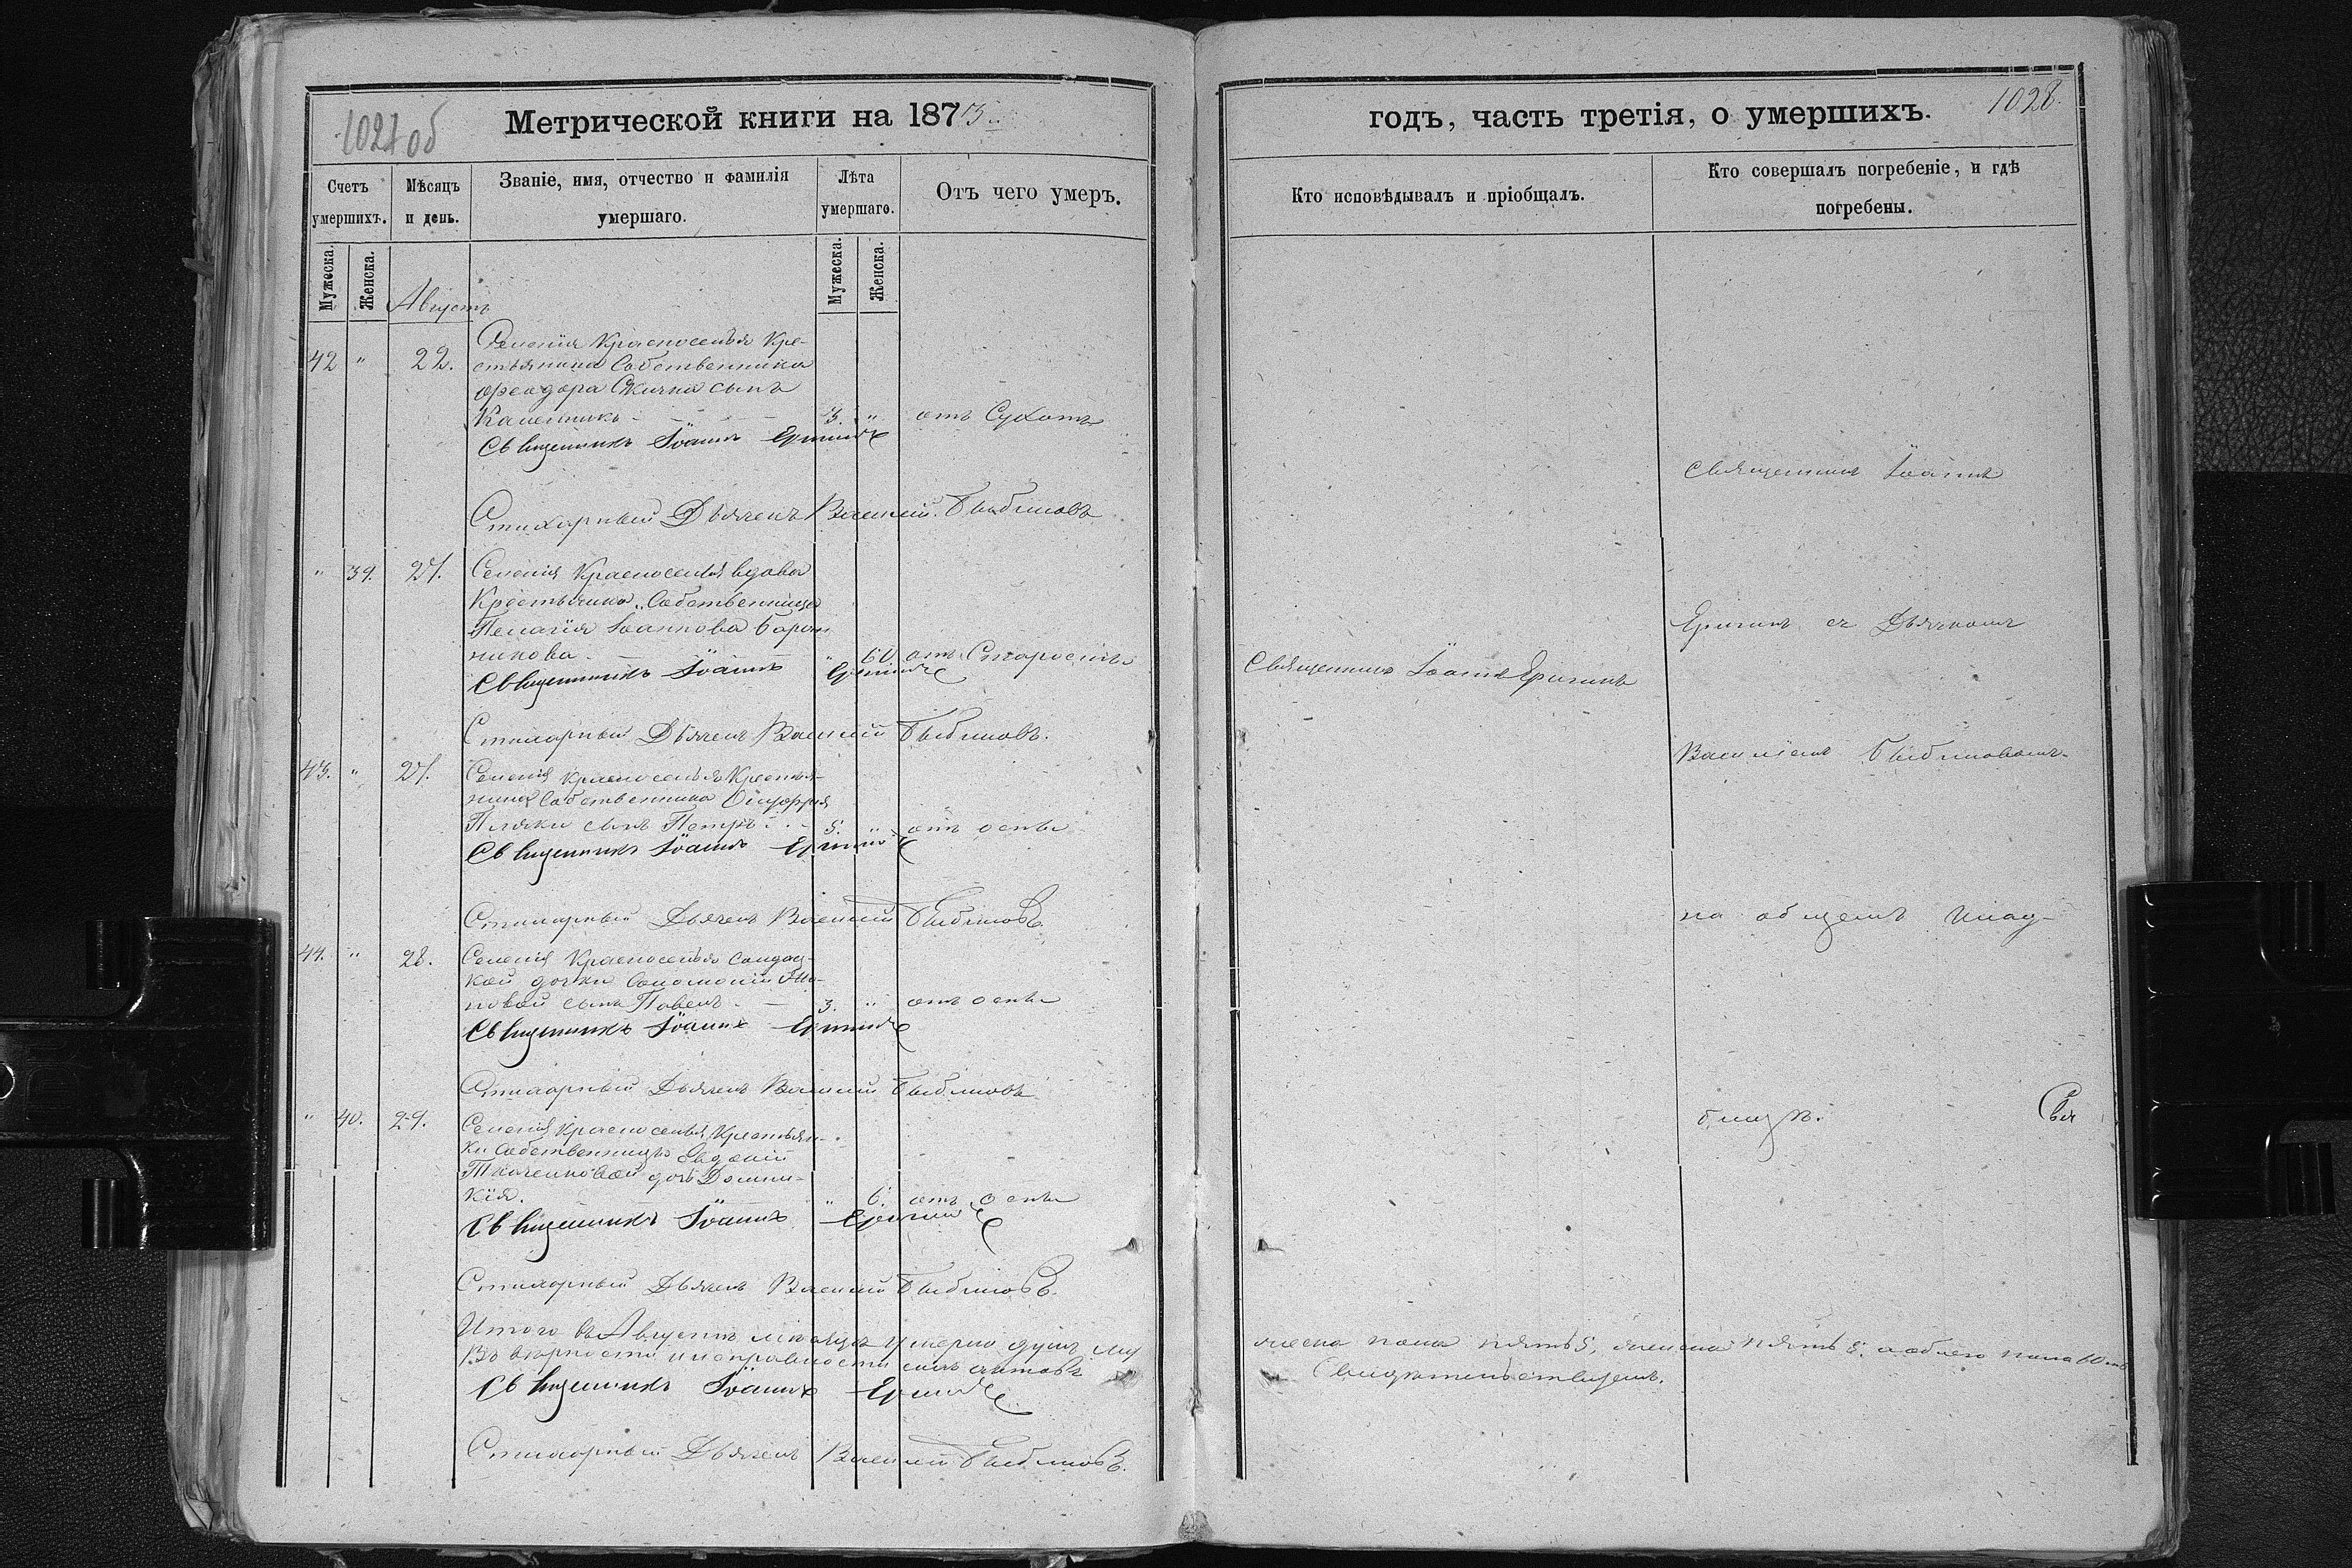 1027 об
Метрической книги на 1873
Счетъ умершихъ.
Мѣсяцъ и день.
Званіе, имя, отчество и фамилія умершаго.
Лѣта умершаго.
Отъ чего умеръ.
Мужеска.
Женска.
Мужеска.
Женска.
Августъ
42 " 22. Селенія Красноселья Кре-
стьянина Собственника
сынъ
3. " отъ Сухотъ
Священникъ Іоаннъ
Стихарный Дьячекъ Василій
" 39. 27. Селенія Красноселья вдова
Крестьянка Собственница
Пелагія Іоаннова
60 отъ Старости
Священникъ Іоаннъ
Стихарный Дьячекъ Василій
43. " 27. Селенія Красноселья Крестья-
нина Собственника
сынъ Петръ 5. " отъ оспы
Священникъ Іоаннъ
Стихарный Дьячекъ Василій
44. " 28. Селенія Красноселья солдат-
кой дочки
сынъ Павелъ 3. " отъ оспы
Священникъ Іоаннъ
Стихарный Дьячекъ Василій
" 40. 29. Селенія Красноселья Крестьян-
ки Собственницы Евдокіи
Ткаченковой дочь Домни-
кія. " 6. отъ оспы
Священникъ Іоаннъ
Стихарный Дьячекъ Василій
Итого въ Августѣ мѣсяцѣ умерло душъ му
Въ вѣрности и исправности сихъ актовъ
Священникъ Іоаннъ
Стихарный Дьячекъ Василій
годъ, часть третія, о умершихъ.
1028.
Кто исповѣдывалъ и пріобщалъ.
Кто совершалъ погребеніе, и гдѣ
погребены.
Священникъ Іоаннъ
съ Дьячкомъ
Священникъ Іоаннъ
Василіемъ
на общемъ клад-
бищѣ.
жеска пола пять 5, женска пять 5, а обоего пола 10ть
Свидѣтельствуемъ.